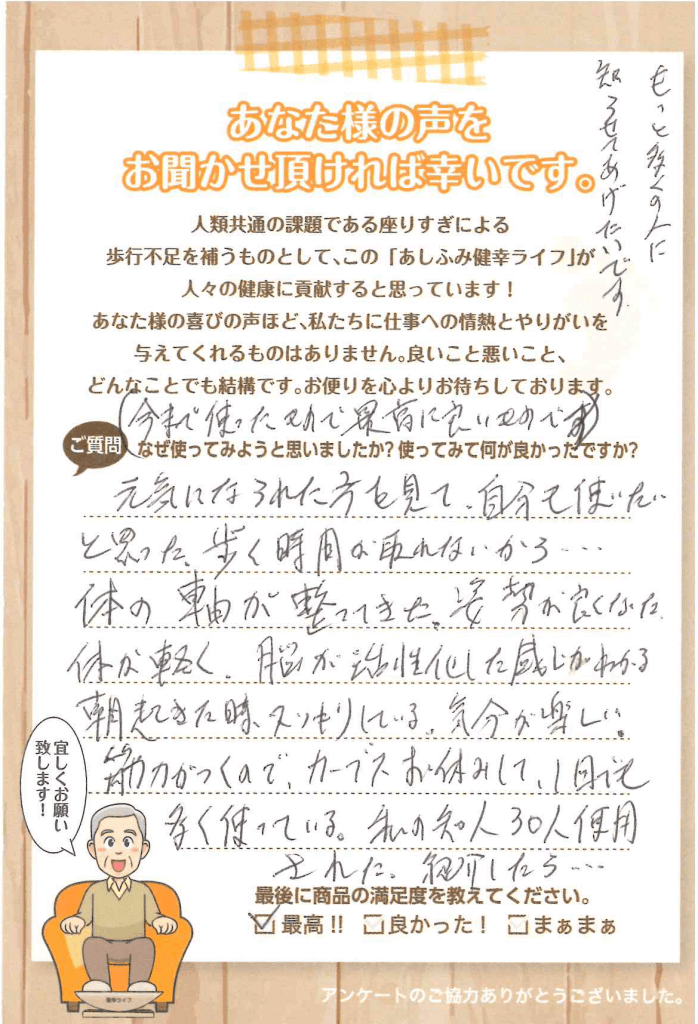 もっと多くの人に
知らせてあげたいです。
あなた様の声を
お聞かせ頂ければ幸いです。
人類共通の課題である座りすぎによる
歩行不足を補うものとして、この「あしふみ健幸ライフ」が
人々の健康に貢献すると思っています！
あなた様の喜びの声ほど、私たちに仕事への情熱とやりがいを
与えてくれるものはありません。良いこと悪いこと、
どんなことでも結構です。お便りを心よりお待ちしております。
(今まで使ったもので最高に良いものです)
ご質問 なぜ使ってみようと思いましたか？使ってみて何が良かったですか？
元気になられた方を見て、自分も使いたい
と思った。歩く時間が取れないから…
体の軸が整ってきた。姿勢が良くなった。
体が軽く、脳が活性化した感じがわかる
朝起きた時、スッキリしている。気分が楽しい。
筋力がつくので、カーブスお休みして、1日でも
多く使っている。私の知人30人使用
された。紹介したら…
最後に商品の満足度を教えてください。
☑最高!! □良かった！ □まぁまぁ
宜しくお願い
致します！
健幸ライフ
アンケートのご協力ありがとうございました。